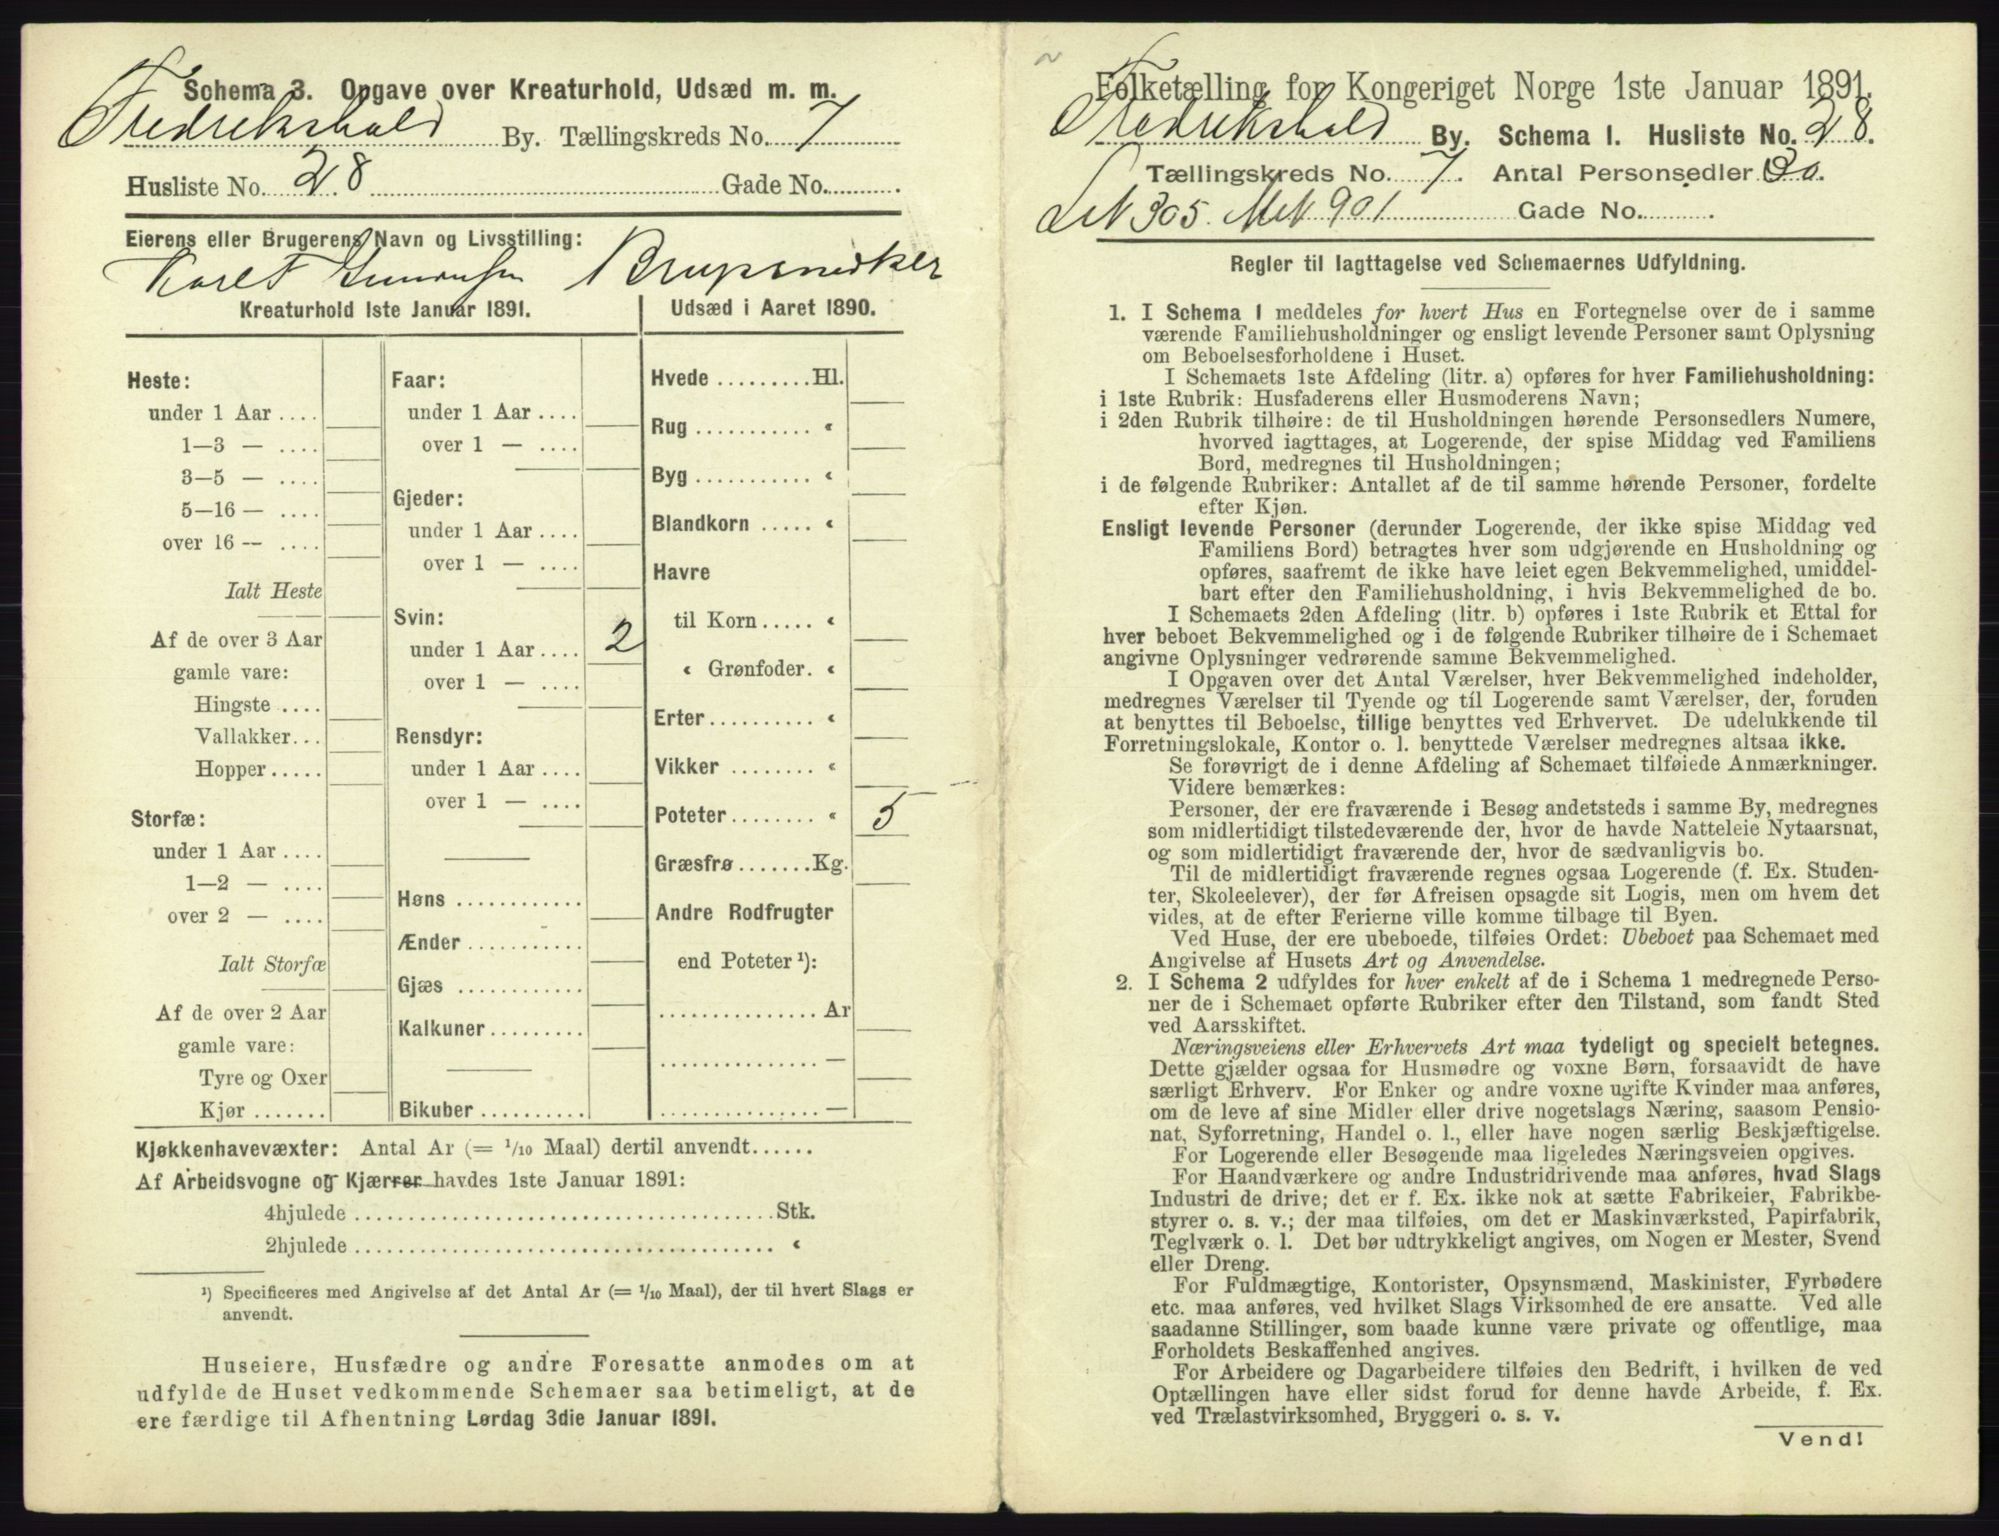 Schema 3. Opgave over Kreaturhold, Udsæd m. m.
Fredrikshald By. Tællingskreds No. 7
Husliste No. 28 Gade No.
Eierens eller Brugerens Navn og Livsstilling:
Karel
Kreaturhold 1ste Januar 1891.
Heste:
under 1 Aar ....
1—3 — ....
3—5 — ....
5—16 — ....
over 16 — ....
Ialt Heste
Af de over 3 Aar
gamle vare:
Hingste ....
Vallakker...
Hopper.....
Storfæ:
under 1 Aar ....
1—2 — ....
over 2 — ....
Ialt Storfæ
Af de over 2 Aar
gamle vare:
Tyre og Oxer
Kjør .......
Faar:
under 1 Aar ....
over 1 — ....
Gjeder:
under 1 Aar ....
over 1 — ....
Svin:
under 1 Aar .... 2
over 1 — ....
Rensdyr:
under 1 Aar ....
over 1 — ....
Høns ............
Ænder ...........
Gjæs ............
Kalkuner.........
Bikuber ..........
Udsæd i Aaret 1890.
Hvede .........Hl.
Rug ........... «
Byg ........... «
Blandkorn ..... «
Havre
til Korn ..... «
« Grønfoder. «
Erter.......... «
Vikker ........ «
Poteter ........ « 5
Græsfrø .......Kg.
Andre Rodfrugter
end Poteter ¹):
............... Ar
............... —
............... —
Kjøkkenhavevæxter: Antal Ar (= 1/10 Maal) dertil anvendt......
Af Arbeidsvogne og Kjærrer havdes 1ste Januar 1891:
4hjulede ....................................... Stk.
2hjulede ....................................... «
¹) Specificeres med Angivelse af det Antal Ar (= 1/10 Maal), der til hvert Slags er
anvendt.
Huseiere, Husfædre og andre Foresatte anmodes om at
udfylde de Huset vedkommende Schemaer saa betimeligt, at de
ere færdige til Afhentning Lørdag 3die Januar 1891.
Folketælling for Kongeriget Norge 1ste Januar 1891.
Fredrikshald By. Schema I. Husliste No. 28.
Tællingskreds No. 7. Antal Personsedler 30.
Let 305. Met 901 Gade No. .
Regler til Iagttagelse ved Schemaernes Udfyldning.
1. I Schema 1 meddeles for hvert Hus en Fortegnelse over de i samme
værende Familiehusholdninger og ensligt levende Personer samt Oplysning
om Beboelsesforholdene i Huset.
I Schemaets 1ste Afdeling (litr. a) opføres for hver Familiehusholdning:
i 1ste Rubrik: Husfaderens eller Husmoderens Navn;
i 2den Rubrik tilhøire: de til Husholdningen hørende Personsedlers Numere,
hvorved iagttages, at Logerende, der spise Middag ved Familiens
Bord, medregnes til Husholdningen;
i de følgende Rubriker: Antallet af de til samme hørende Personer, fordelte
efter Kjøn.
Ensligt levende Personer (derunder Logerende, der ikke spise Middag ved
Familiens Bord) betragtes hver som udgjørende en Husholdning og
opføres, saafremt de ikke have leiet egen Bekvemmelighed, umiddel-
bart efter den Familiehusholdning, i hvis Bekvemmelighed de bo.
I Schemaets 2den Afdeling (litr. b) opføres i 1ste Rubrik et Ettal for
hver beboet Bekvemmelighed og i de følgende Rubriker tilhøire de i Schemaet
angivne Oplysninger vedrørende samme Bekvemmelighed.
I Opgaven over det Antal Værelser, hver Bekvemmelighed indeholder,
medregnes Værelser til Tyende og til Logerende samt Værelser, der, foruden
at benyttes til Beboelse, tillige benyttes ved Erhvervet. De udelukkende til
Forretningslokale, Kontor o. l. benyttede Værelser medregnes altsaa ikke.
Se forøvrigt de i denne Afdeling af Schemaet tilføiede Anmærkninger.
Videre bemærkes:
Personer, der ere fraværende i Besøg andetsteds i samme By, medregnes
som midlertidigt tilstedeværende der, hvor de havde Natteleie Nytaarsnat,
og som midlertidigt fraværende der, hvor de sædvanligvis bo.
Til de midlertidigt fraværende regnes ogsaa Logerende (f. Ex. Studen-
ter, Skoleelever), der før Afreisen opsagde sit Logis, men om hvem det
vides, at de efter Ferierne ville komme tilbage til Byen.
Ved Huse, der ere ubeboede, tilføies Ordet: Ubeboet paa Schemaet med
Angivelse af Husets Art og Anvendelse.
2. I Schema 2 udfyldes for hver enkelt af de i Schema 1 medregnede Perso-
ner de i Schemaet opførte Rubriker efter den Tilstand, som fandt Sted
ved Aarsskiftet.
Næringsveiens eller Erhvervets Art maa tydeligt og specielt betegnes.
Dette gjælder ogsaa for Husmødre og voxne Børn, forsaavidt de have
særligt Erhverv. For Enker og andre voxne ugifte Kvinder maa anføres,
om de leve af sine Midler eller drive nogetslags Næring, saasom Pensio-
nat, Syforretning, Handel o. l., eller have nogen særlig Beskjæftigelse.
For Logerende eller Besøgende maa ligeledes Næringsveien opgives.
For Haandværkere og andre Industridrivende maa anføres, hvad Slags
Industri de drive; det er f. Ex. ikke nok at sætte Fabrikeier, Fabrikbe-
styrer o. s. v.; der maa tilføies, om det er Maskinværksted, Papirfabrik,
Teglværk o. l. Det bør udtrykkeligt angives, om Nogen er Mester, Svend
eller Dreng.
For Fuldmægtige, Kontorister, Opsynsmænd, Maskinister, Fyrbødere
etc. maa anføres, ved hvilket Slags Virksomhed de ere ansatte. Ved alle
saadanne Stillinger, som baade kunne være private og offentlige, maa
Forholdets Beskaffenhed angives.
For Arbeidere og Dagarbeidere tilføies den Bedrift, i hvilken de ved
Optællingen have eller sidst forud for denne havde Arbeide, f. Ex.
ved Trælastvirksomhed, Bryggeri o. s. v.
Vend!